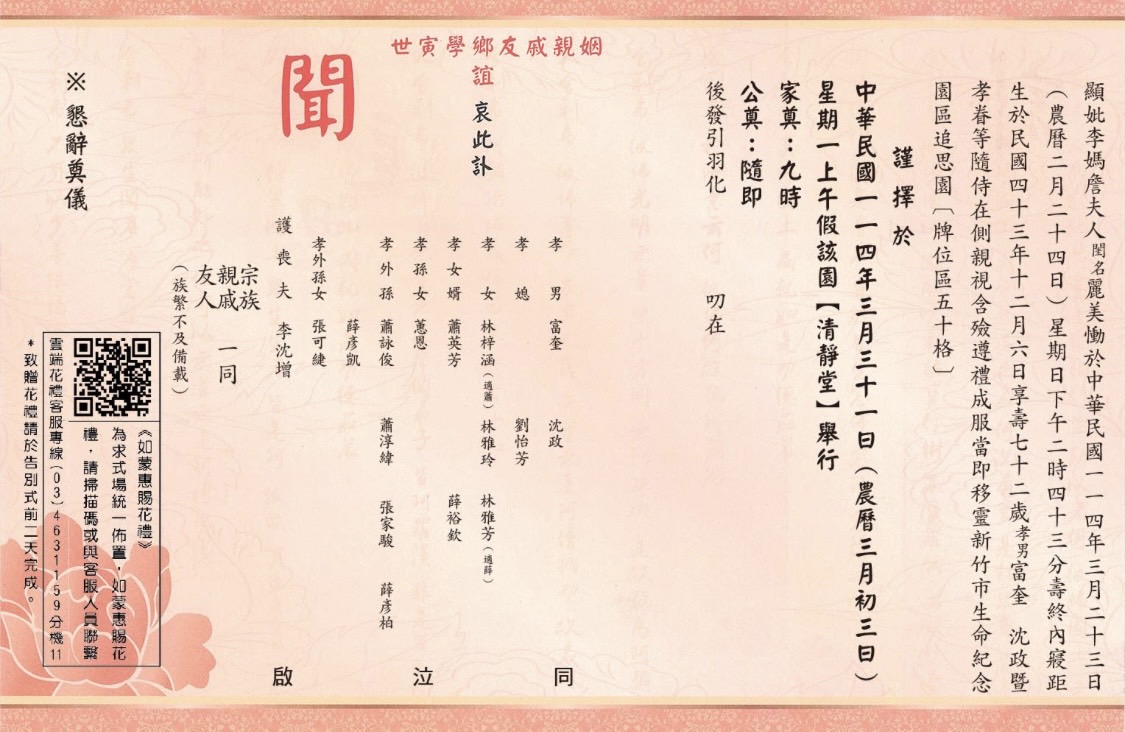 顯妣李媽詹夫人閨名麗美慟於中華民國一一四年三月二十三日
（農曆二月二十四日）星期日下午二時四十三分壽終內寢距
生於民國四十三年十二月六日享壽七十二歲孝男富奎　沈政暨
孝眷等隨侍在側親視含殮遵禮成服當即移靈新竹市生命紀念
園區追思園〔牌位區五十格〕
謹擇於
中華民國一一四年三月三十一日（農曆三月初三日）
星期一上午假該園【清靜堂】舉行
家奠：九時
公奠：隨即
後發引羽化　叨在
世寅學鄉友戚親姻
誼　哀此訃
聞
孝男　富奎　沈政
孝媳　劉怡芳
孝女　林梓涵（適蕭）　林雅玲　林雅芳（適薛）
孝女婿　蕭英芳　薛裕欽
孝孫女　蕙恩
孝外孫　蕭詠俊　蕭淳緯　張家駿　薛彥柏
薛彥凱
孝外孫女　張可緁
護喪夫　李沈增
同　泣　啟
宗族
親戚　一同
友人
（族繁不及備載）
※懇辭奠儀
《如蒙惠賜花禮》
為求式場統一佈置，如蒙惠賜花
禮，請掃描碼或與客服人員聯繫
雲端花禮客服專線(03)4631159分機11
*致贈花禮請於告別式前二天完成。